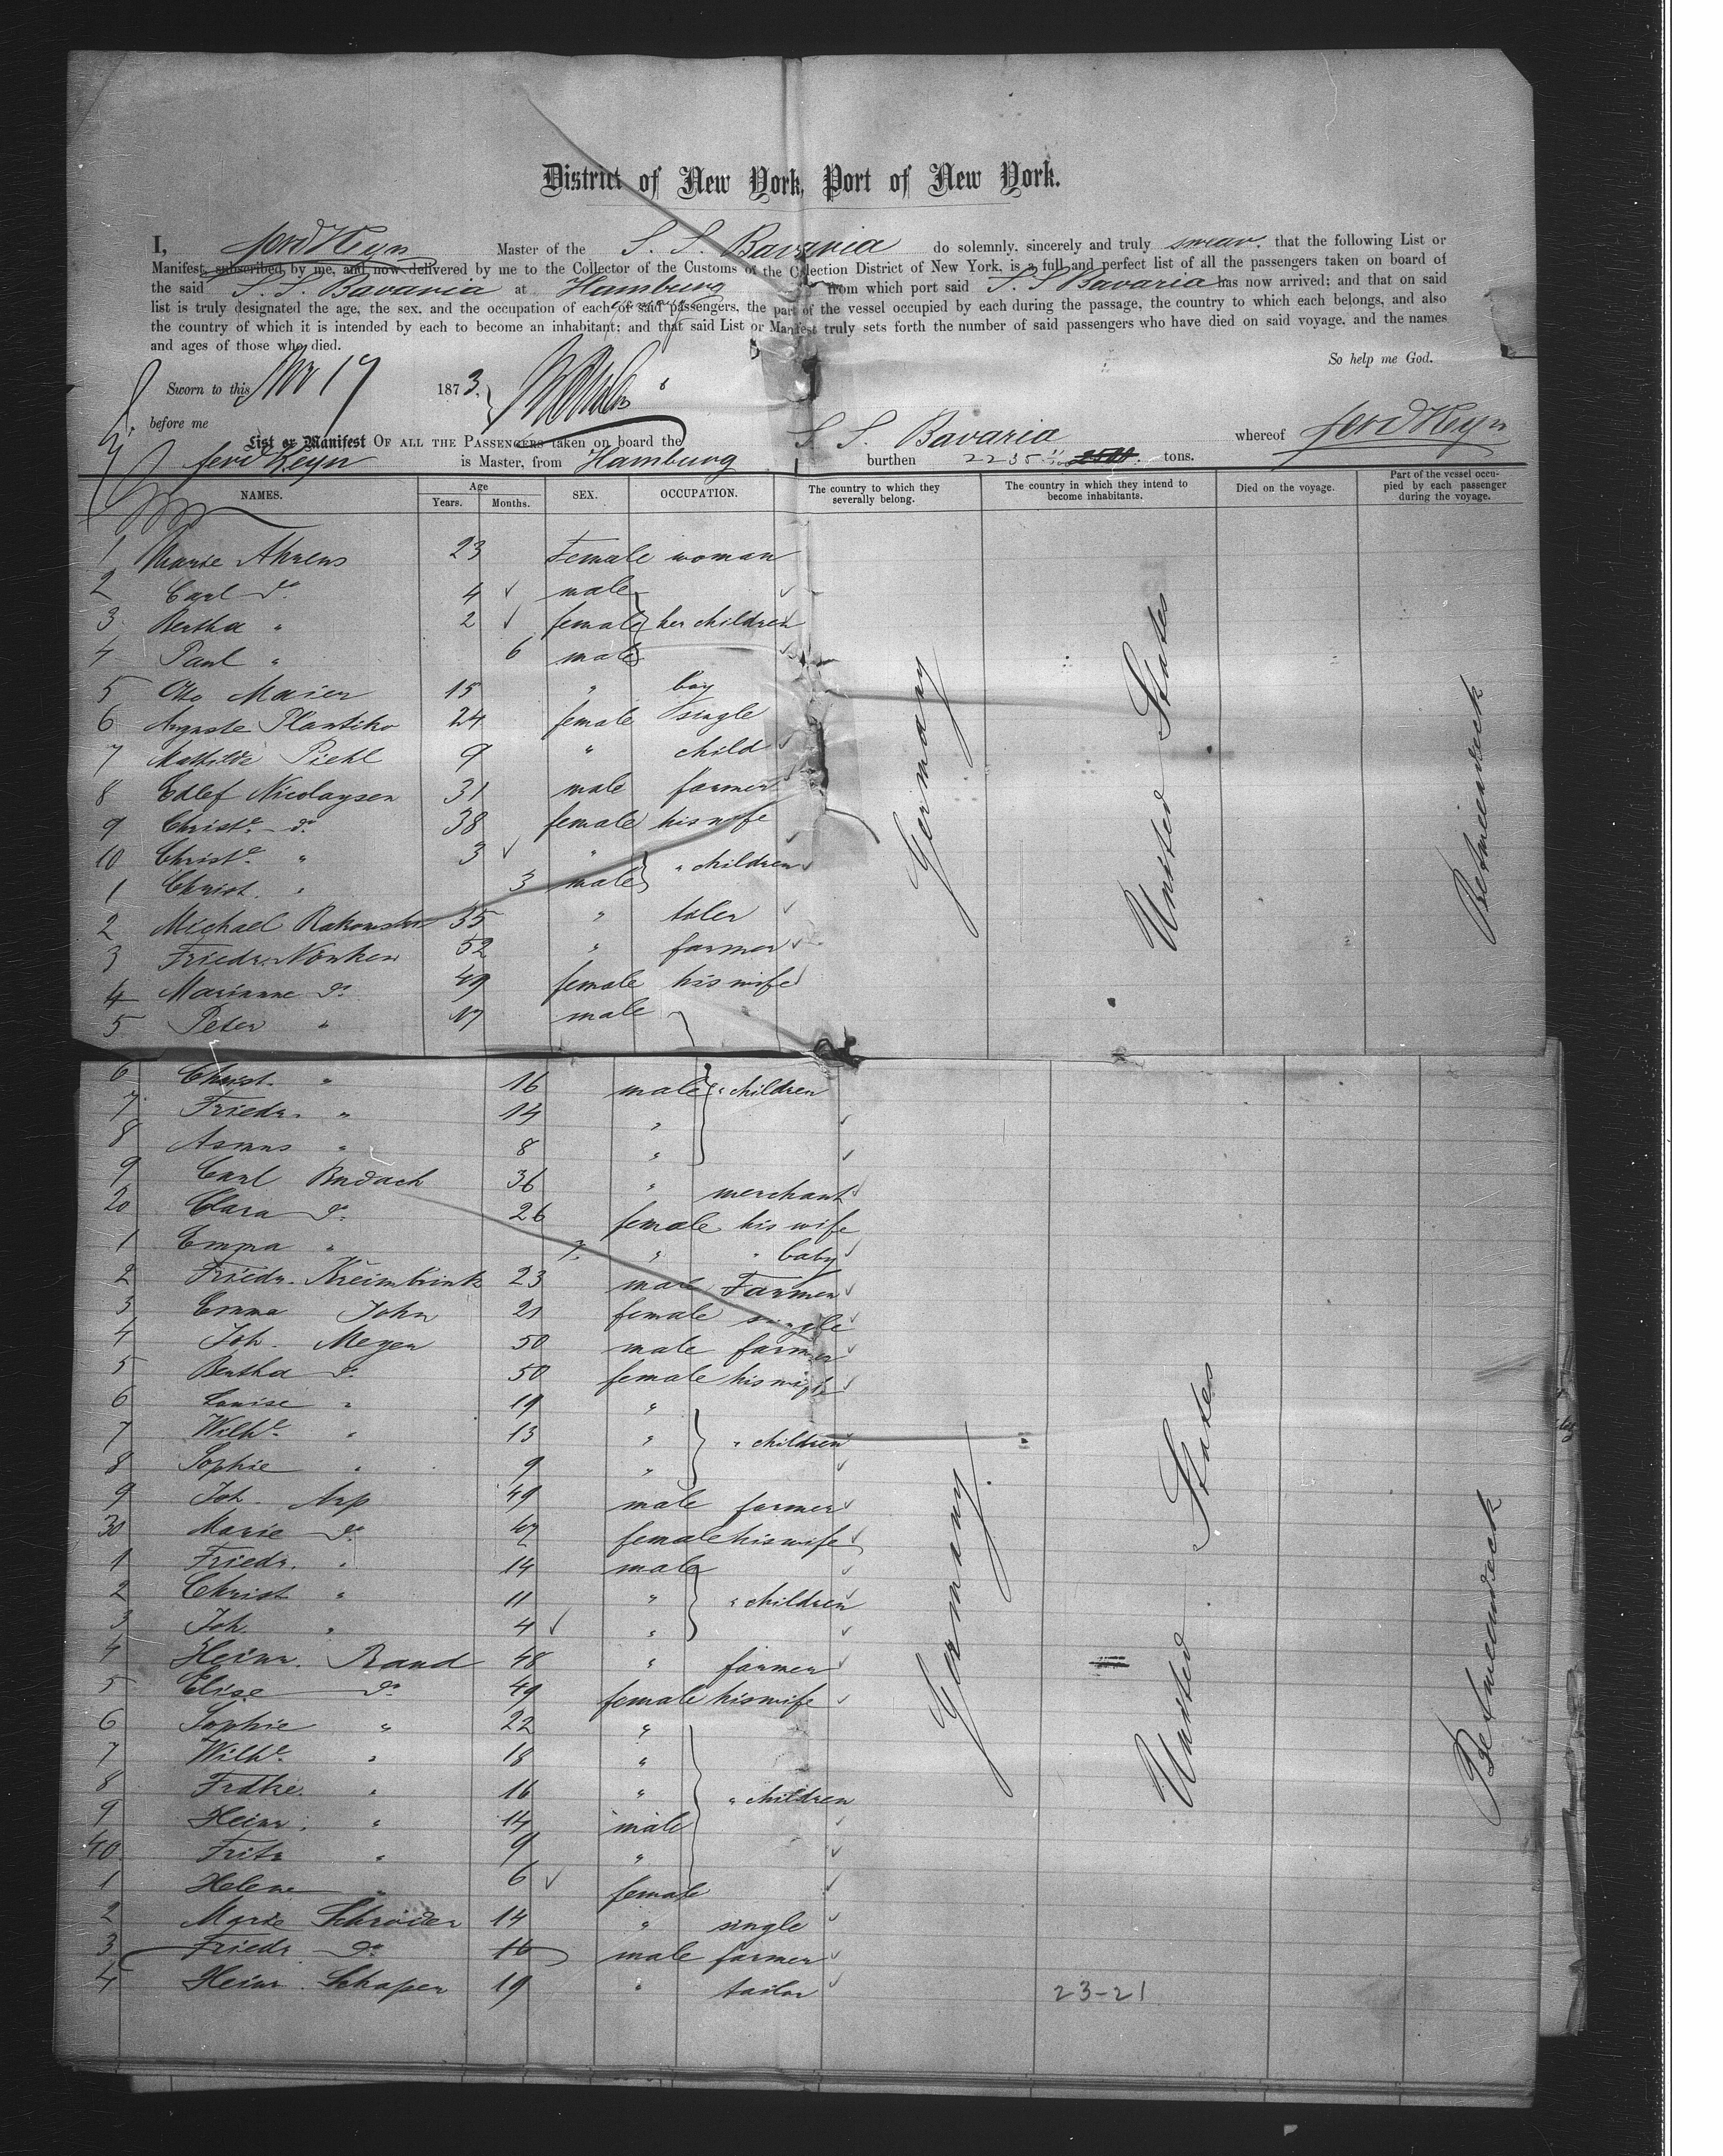 District of New York, Port of New York.
I, Ferd Keyn Master of the S. S. Bavaria do solemnly, sincerely and truly swear, that the following List or
Manifest, subscribed by me, and now delivered by me to the Collector of the Customs of the Collection District of New York, is a full and perfect list of all the passengers taken on board of
the said S. S. Bavaria at Hamburg from which port said S. S Bavaria has now arrived; and that on said
list is truly designated the age, the sex, and the occupation of each of said passengers, the part of the vessel occupied by each during the passage, the country to which each belongs, and also
the country of which it is intended by each to become an inhabitant; and that said List or Manifest truly sets forth the number of said passengers who have died on said voyage, and the names
and ages of those who died.
So help me God.
Sworn to this Nov 17 1873.
before me
List or Manifest OF ALL THE PASSENGERS taken on board the S. S. Bavaria whereof Ferd Keyn
Ferd Keyn is Master, from Hamburg burthen 2235 2500 tons.
NAMES. Age Years. Months. SEX. OCCUPATION. The country to which they severally belong. The country in which they intend to become inhabitants. Died on the voyage. Part of the vessel occupied by each passenger during the voyage.
1 Marie Ahrens 23 Female woman
2 Carl do 4 male
3 Bertha " 2 female her children
4 Paul " 6 male
5 Otto Maier 15 " boy
6 Auguste Plantiko 24 female single
7 Mathilde Piehl 9 " child
8 Edlef Nicolaysen 31 male farmer
9 Christe do 38 female his wife
10 Christe " 3 " " children
1 Christ. " 3 male
2 Michael Rakowski 35 " toler
3 Friedr. Nonken 52 " farmer
4 Marianne do 49 female his wife
5 Peter " 17 male
6 Christ. " 16 male " children
7 Friedr. " 14 "
8 Asmus " 8 "
9 Carl Budach 36 " merchant
20 Clara do 26 female his wife
1 Emma " 7 " " baby
2 Friedr. Kreimbrink 23 male Farmer
3 Emma John 21 female single
4 Joh. Meyer 50 male farmer
5 Bertha do 50 female his wife
6 Louise " 19 "
7 Wilhe. " 13 " " children
8 Sophie " 9 "
9 Joh. Arp 49 male farmer
30 Marie do 47 female his wife
1 Friedr. " 14 male
2 Christ " 11 " " children
3 Joh. " 4 "
4 Heinr. Band 48 " farmer
5 Elise do 49 female his wife
6 Sophie " 22 "
7 Wilhe. " 18 "
8 Frdke. " 16 " " children
9 Heinr. " 14 male
40 Fritz " 9 "
1 Helene " 6 female
2 Marie Schröder 14 " single
3 Friedr do 16 male farmer
4 Heinr. Schaper 19 " tailor
Germany
United States
Betweendeck
Germany
United States
Betweendeck
23-21